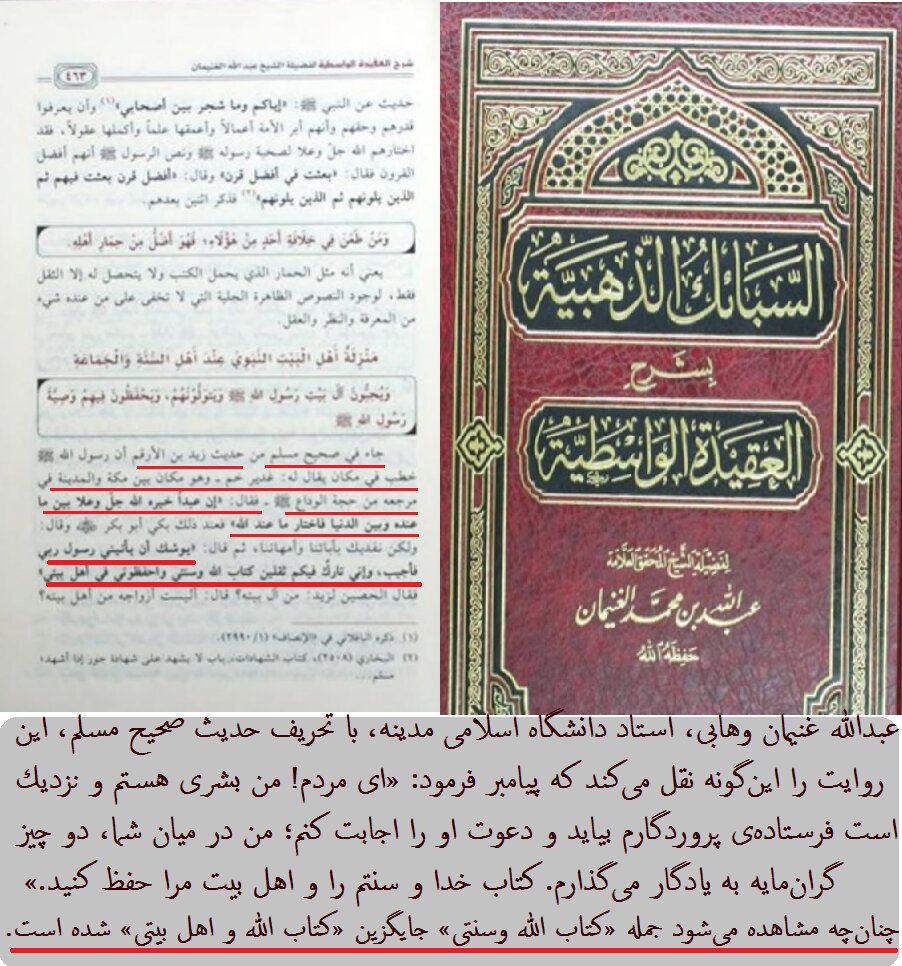 شرح العقيدة الواسطية لفضيلة الشيخ عبد الله الغنيمان
٤٦٣
حديث عن النبي ﷺ: «إياكم وما شجر بين أصحابي»(١) وأن يعرفوا
قدرهم وحقهم وأنهم أبر الأمة أعمالاً وأعمقها علماً وأكملها عقولاً، فقد
اختارهم الله جلّ وعلا لصحبة رسوله ﷺ ونص الرسول ﷺ أنهم أفضل
القرون فقال: «بعثت في أفضل قرن» وقال: «أفضل قرن بعثت فيهم ثم
الذين يلونهم ثم الذين يلونهم»(٢) فذكر اثنين بعدهم.
وَمَنْ طَعَنَ فِي خِلَافَةِ أَحَدٍ مِنْ هَؤُلَاءِ؛ فَهُوَ أَضَلُّ مِنْ حِمَارِ أَهْلِهِ.
يعني أنه مثل الحمار الذي يحمل الكتب ولا يتحصل له إلا الثقل
فقط، لوجود النصوص الظاهرة الجلية التي لا تخفى على من عنده شيء
من المعرفة والنظر والعقل.
مَنْزِلَةُ أَهْلِ الْبَيْتِ النَّبَوِيِّ عِنْدَ أَهْلِ السُّنَّةِ وَالْجَمَاعَةِ
وَيُحِبُّونَ آلَ بَيْتِ رَسُولِ اللهِ ﷺ وَيَتَوَلَّوْنَهُمْ، وَيَحْفَظُونَ فِيهِمْ وَصِيَّةَ
رَسُولِ اللهِ ﷺ
جاء في صحيح مسلم من حديث زيد بن الأرقم أن رسول الله ﷺ
خطب في مكان يقال له: غدير خم ـ وهو مكان بين مكة والمدينة في
مرجعه من حجة الوداع ﷺ ـ فقال: «إن عبداً خيره الله جلّ وعلا بين ما
عنده وبين الدنيا فاختار ما عند الله» فعند ذلك بكي أبو بكر ﷺ وقال:
ولكن نفديك بآبائنا وأمهاتنا، ثم قال: «يوشك أن يأتيني رسول ربي
فأجيب، وإني تارك فيكم ثقلين كتاب الله وسنتي واحفظوني في أهل بيتي»
فقال الحصين لزيد: من آل بيته؟ قال: أليست أزواجه من أهل بيته؟
(١) ذكره الباقلاني في «الإنصاف» (١/ ٢٩٩٠).
(٢) البخاري (٢٥٠٨)، كتاب الشهادات، باب لا يشهد على شهادة جور إذا أشهد؛
مسلم ...
السَّبَائِكُ الذَّهَبِيَّة
بِشَرْحِ
العَقِيدَةِ الوَاسِطِيَّة
لِفَضِيلَةِ الشَّيْخِ المُحَقِّقِ العَلَّامَة
عَبْدِ الله بن مُحَمَّد الغُنَيْمَان
حَفِظَهُ الله
عبدالله غنیمان وهابی، استاد دانشگاه اسلامی مدینه، با تحریف حدیث صحیح مسلم، این
روایت را این‌گونه نقل می‌کند که پیامبر فرمود: «ای مردم! من بشری هستم و نزدیك
است فرستاده‌ی پروردگارم بیاید و دعوت او را اجابت کنم؛ من در میان شما، دو چیز
گران‌مایه به یادگار می‌گذارم. کتاب خدا و سنتم را و اهل بیت مرا حفظ کنید.»
چنان‌چه مشاهده می‌شود جمله «کتاب الله وسنتی» جایگزین «کتاب الله و اهل بیتی» شده است.